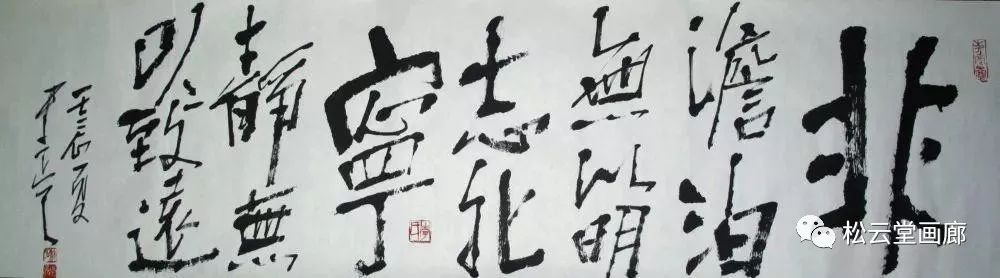 非
澹泊
無以明
志非
寧
靜無
以致遠
壬辰夏
松云堂画廊